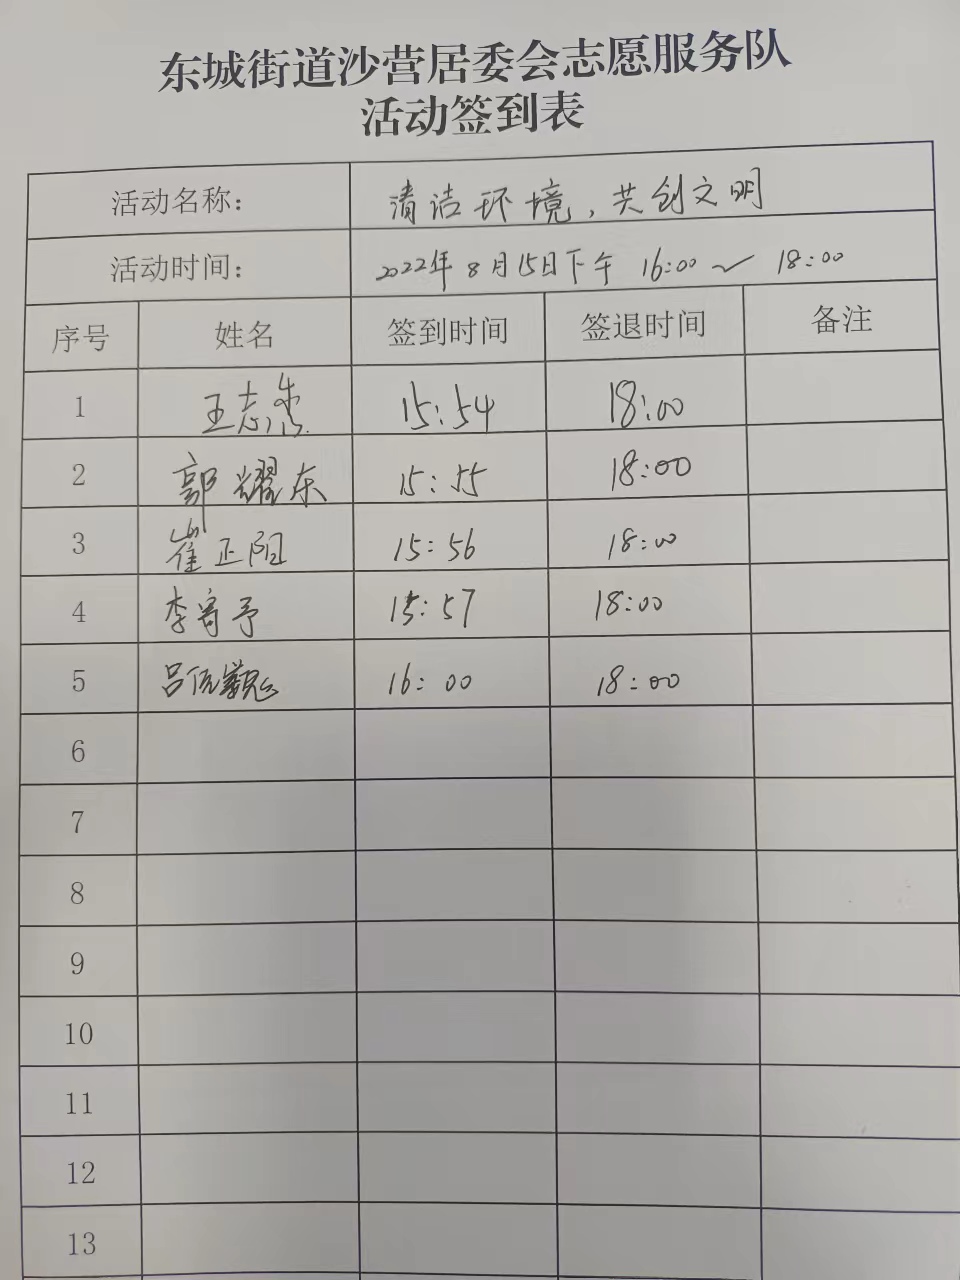 东城街道沙营居委会志愿服务队
活动签到表
活动名称： 清洁环境，共创文明
活动时间： 2022年8月15日下午 16:00～18:00
序号 姓名 签到时间 签退时间 备注
1 王志 15:54 18:00
2 郭耀东 15:55 18:00
3 崔正阳 15:56 18:00
4 李寄予 15:57 18:00
5 吕 16:00 18:00
6
7
8
9
10
11
12
13